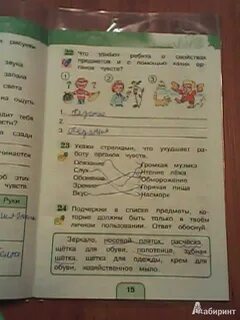 рисунки
звука
запада
света
на ощупь
22 Что узнают ребята о свойствах
предметов и с помощью каких ор-
ганов чувств?
1.
2.
3.
23 Укажи стрелками, что ухудшает
работу органов чувств.
Осязание
Слух
Обоняние
Зрение
Вкус
Громкая музыка
Чтение лёжа
Обморожение
Горячая пища
Насморк
24 Подчеркни в списке предметы, ко-
торые должны быть только в твоём
личном пользовании. Ответ обоснуй.
Зеркало, носовой платок, расчёска,
щётка для обуви, полотенце, зубная
щётка, щётка для одежды, крем для
обуви, хозяйственное мыло.
Руки
15
Znanija